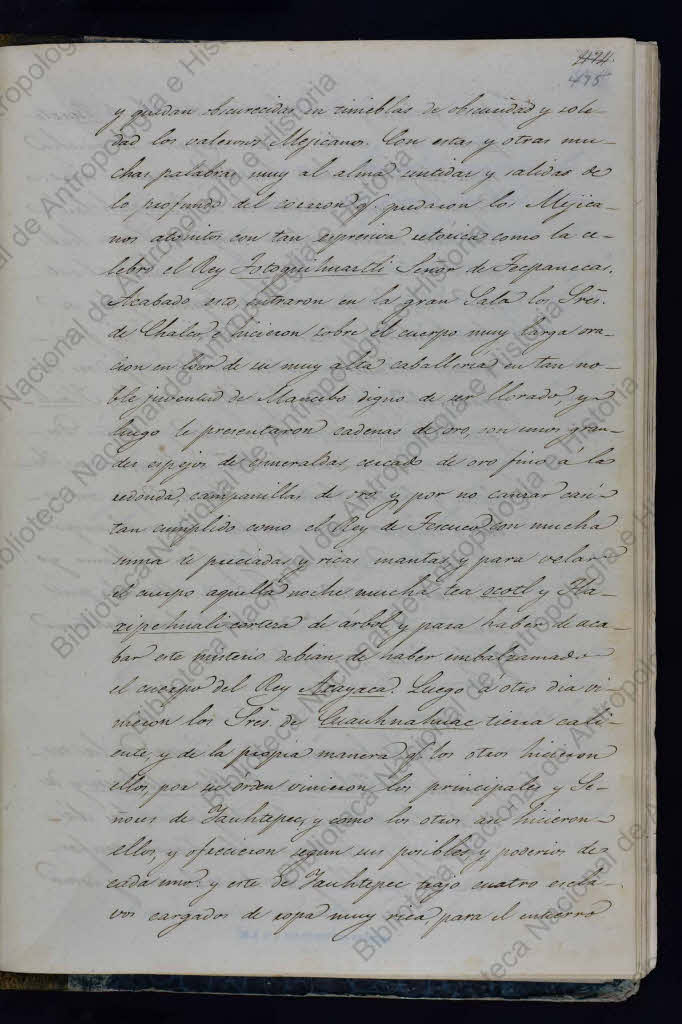 474.
475
y quedan obscurecidas en tinieblas de obscuridad y sole-
dad los valerosos Mejicanos. Con estas y otras mu-
chas palabras muy al alma sentidas y salidas de
lo profundo del corazon q.e quedaron los Mejica-
nos atonitos con tan espresiva retórica como la ce-
lebró el Rey Totoquihuaztli Señor de Tecpanecas.
Acabado esto, entraron en la gran Sala los Sres.
de Chalco, e hicieron sobre el cuerpo muy larga ora-
cion en loor de su muy alta caballeria en tan no-
ble juventud de Mancebo digno de ser llorado, y
luego le presentaron cadenas de oro, con unos gran-
des espejos de esmeraldas, cercado de oro fino á la
redonda, campanillas de oro, y por no cansar casi
tan cumplido como el Rey de Tescuco con mucha
suma de preciadas y ricas mantas, y para velar
el cuerpo aquella noche mucha tea ocotl y Tla-
xipehuali corteza de árbol y para haber de aca-
bar este misterio debian de haber embalzamado
el cuerpo del Rey Axayaca. Luego á otro dia vi-
nieron los Sres. de Cuauhnahuac tierra cali-
ente, y de la propia manera q.e los otros hicieron
ellos, por su orden vinieron los principales y Se-
ñores de Yauhtepec, y como los otros asi hicieron
ellos, y ofrecieron segun sus posibles, y poderios de
cada uno: y este de Yauhtepec trajo cuatro escla-
vos cargados de ropa muy rica para el entierro
Biblioteca Nacional de Antropología e Historia